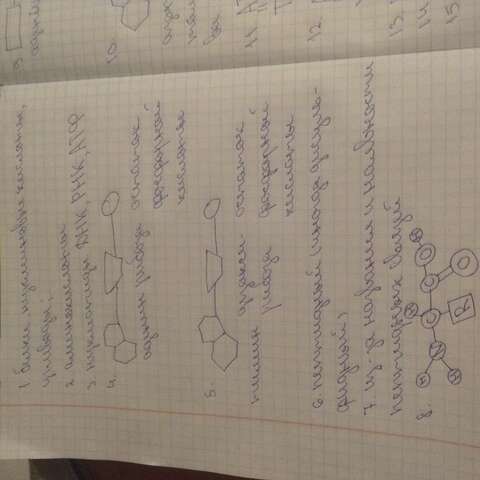 1. белки, нуклиновые кислоты,
углеводы;
2. аминокислоты
3. нуклиотиды ДНК, РНК, АТФ
4.
аденин рибоза остаток
фосфорной
кислоты
5.
тимин дизокси- остаток
рибоза фосфорной
кислоты
6. пептидный (иногда дисуль-
фидный)
7. из-за названия и наявности
пептидных связей
8.
H H H
H N C C O
R O
9.
10.
11.
12.
13.
14.
15.